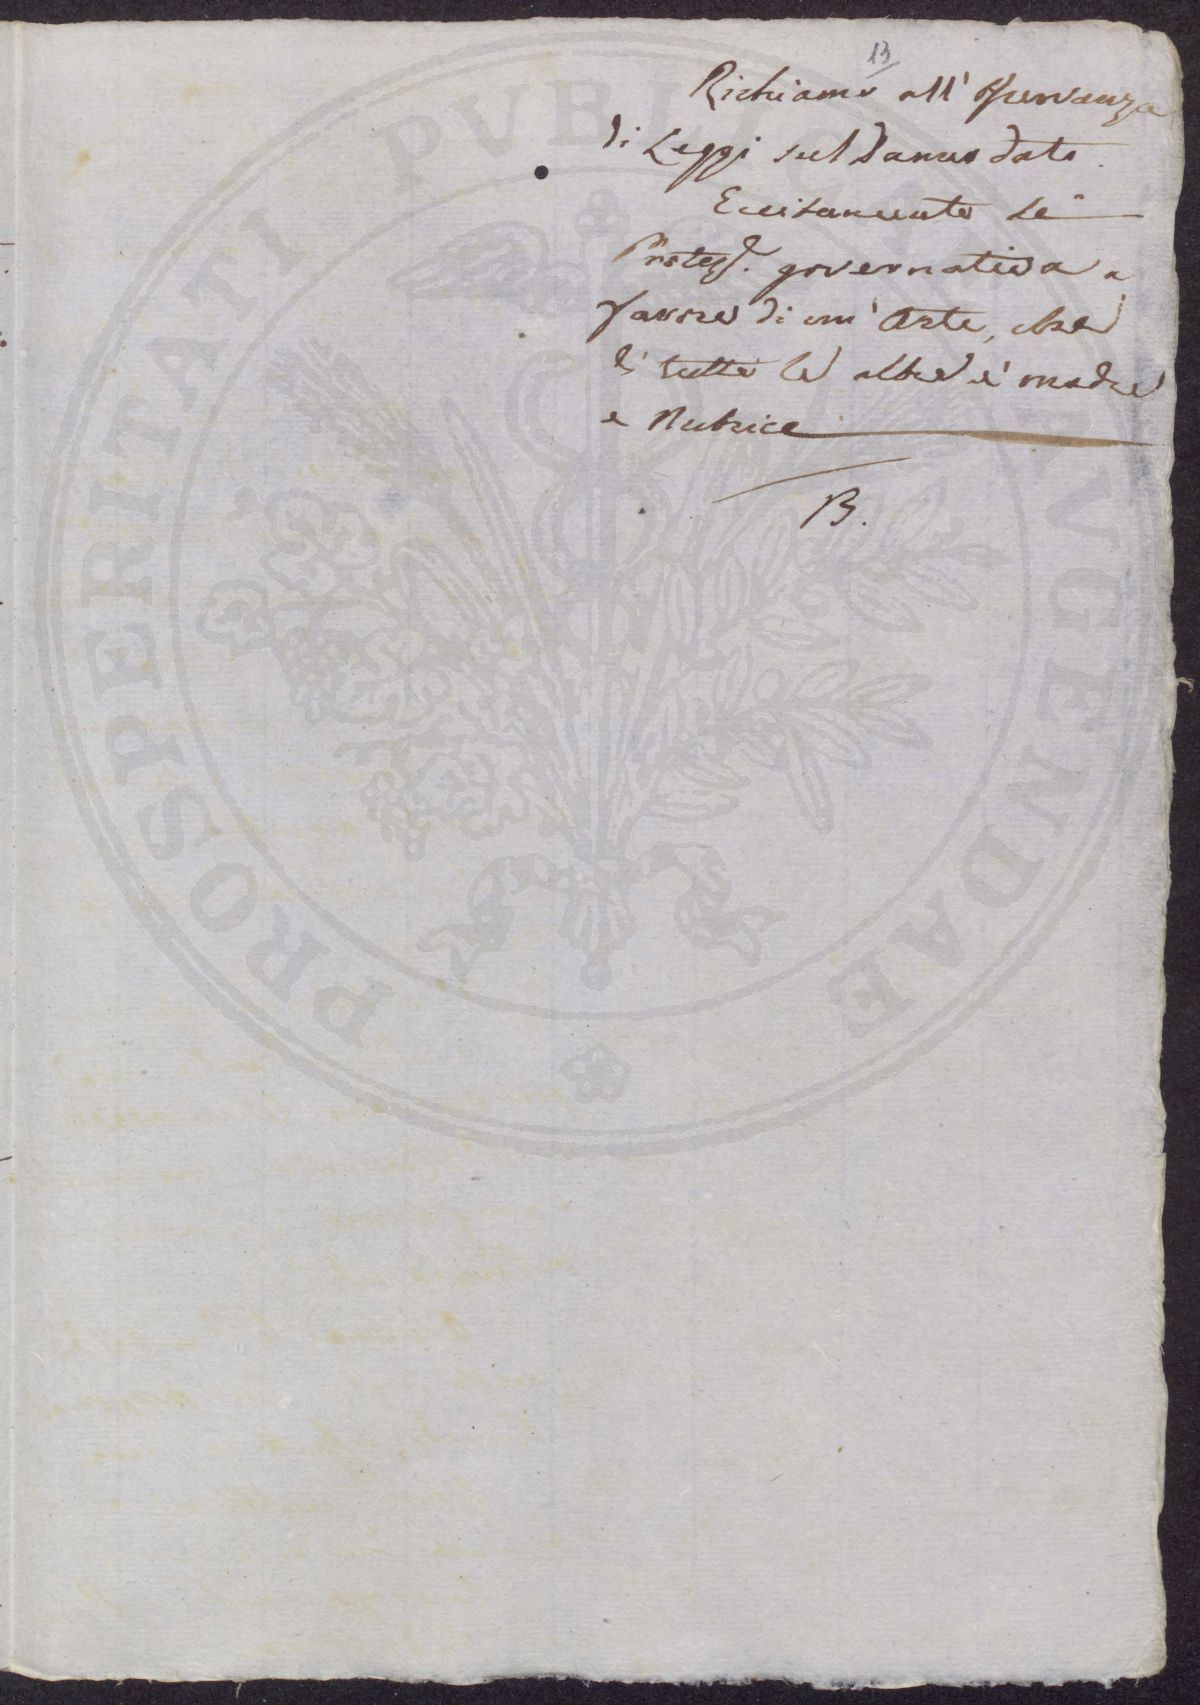 13
Richiamo all'osservanza
di Leggi sul Danno dato.
Eccitamento di
Protez. governativa a
favore di un'Arte, che
di tutte le altre è madre
e Nutrice
B.
PROSPERITATI PVBLICAE AVGENDAE